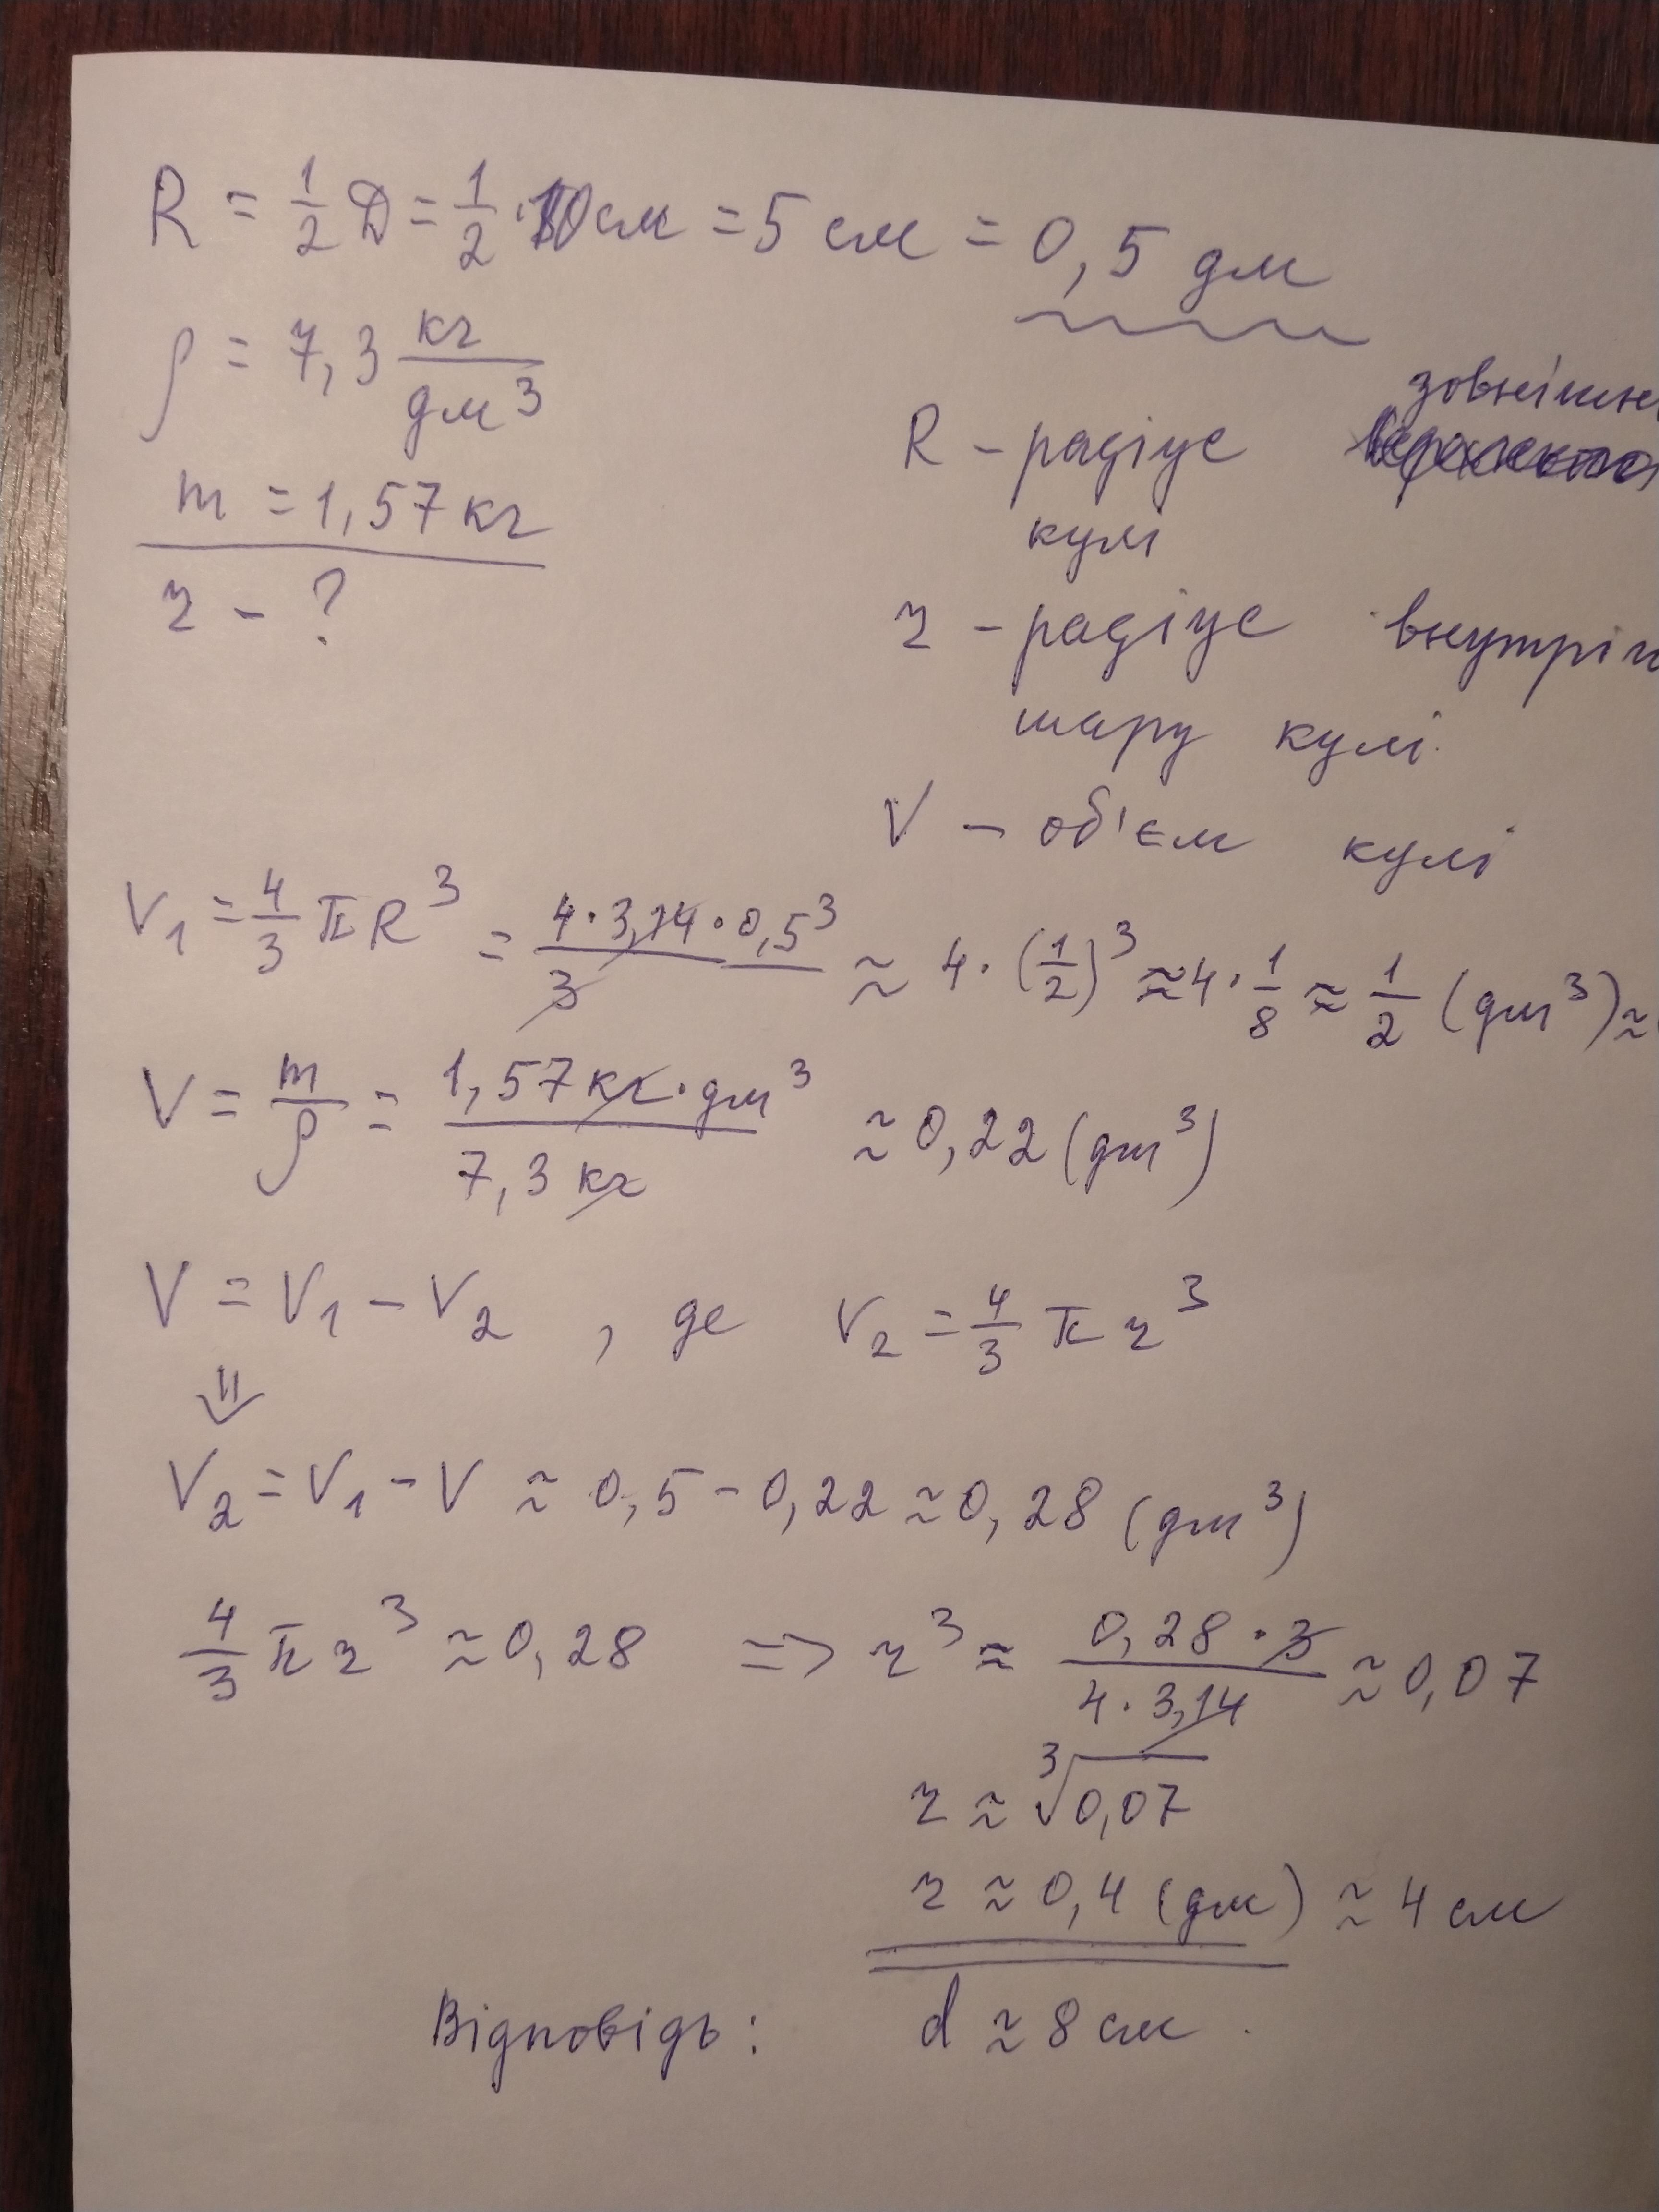 R = 1/2 D = 1/2 · 10 см = 5 см = 0,5 дм
ρ = 7,3 кг/дм³
m = 1,57 кг
r - ?
зовнішн
R - радіус
кулі
r - радіус внутріш
шару кулі.
V - об'єм кулі
V₁ = 4/3 π R³ = 4·3,14·0,5³/3 ≈ 4·(1/2)³ ≈ 4·1/8 ≈ 1/2 (дм³) ≈
V = m/ρ = 1,57 кг·дм³/7,3 кг ≈ 0,22 (дм³)
V = V₁ - V₂ , де V₂ = 4/3 π r³
⇓
V₂ = V₁ - V ≈ 0,5 - 0,22 ≈ 0,28 (дм³)
4/3 π r³ ≈ 0,28 => r³ ≈ 0,28·3/4·3,14 ≈ 0,07
r ≈ ³√0,07
r ≈ 0,4 (дм) ≈ 4 см
Відповідь: d ≈ 8 см.